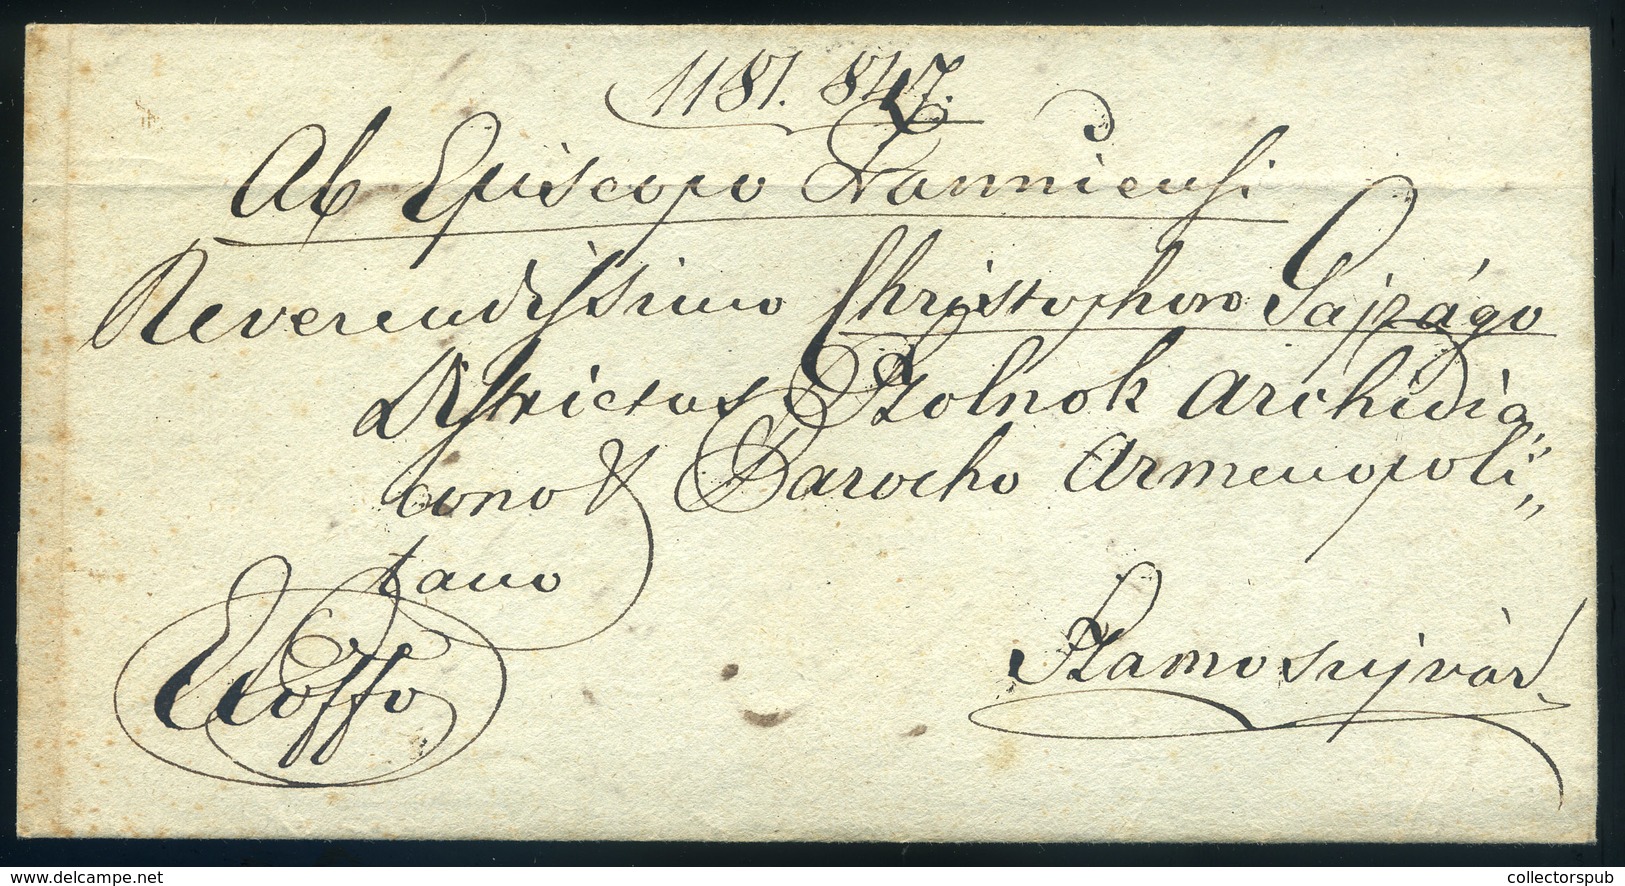 1181. 847.
Ab Episcopo Trannicensi
Reverendissimo Christophoro Sajzágo
Districtus Szolnok Archidia„
cono & Parocho Armenopoli„
tano
Ex offo
Szamosujvár
delcampe.net
collectorspub